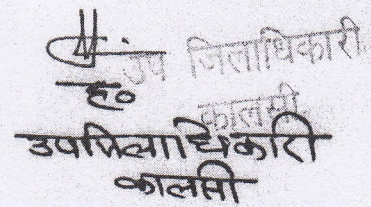 उप जिलाधिकारी
ह०
कालसी
उपजिलाधिकारी
कालसी